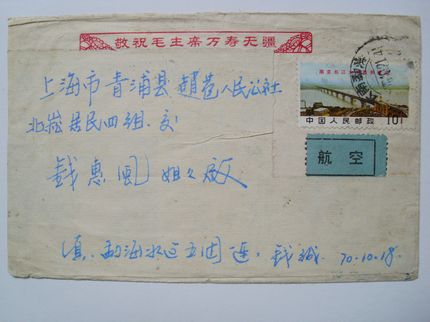 敬祝毛主席万寿无疆
上海市青浦县赵巷人民公社
北崧居民四组.交
南京长江大桥胜利建成
中国人民邮政 10
航空
钱惠 姐 收
滇.勐海水 五团 连.钱 70.10.18.